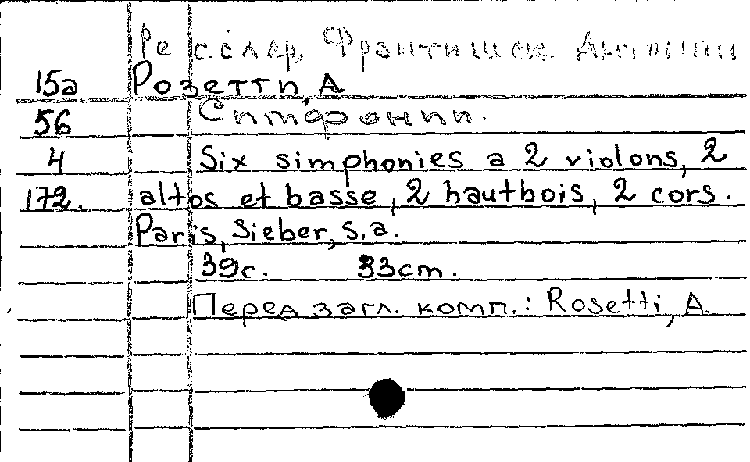 Ресслер, Франтишек Антонин
15а Розетти, А
56 Симфонии.
4 Six simphonies a 2 violons, 2
172. altos et basse, 2 hautbois, 2 cors.
Paris, Sieber, s.a.
39с. 33cm.
Перед загл. комп.: Rosetti, A